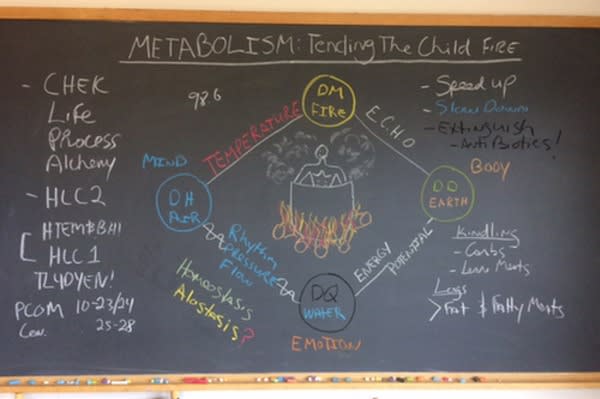 METABOLISM: Tending The Child FIRE
- CHEK
Life
Process
Alchemy
- HCC2
HLC1
TL4DYEN!
PCOM 10-23/24
25-28
98.6
MIND
TEMPERATURE
DM
FIRE
E.C.H.O
DH
AIR
DD
EARTH
BODY
Rhythm
PRESSURE
Flow
ENERGY
POTENTIAL
DQ
WATER
EMOTION
Homeostasis
Alostasis?
- Speed up
- Slow Down
- Extinguish
- AntiBiotics!
Kindling
- Carbs
- Lean Meats
Logs
> Fat & Fatty Meats